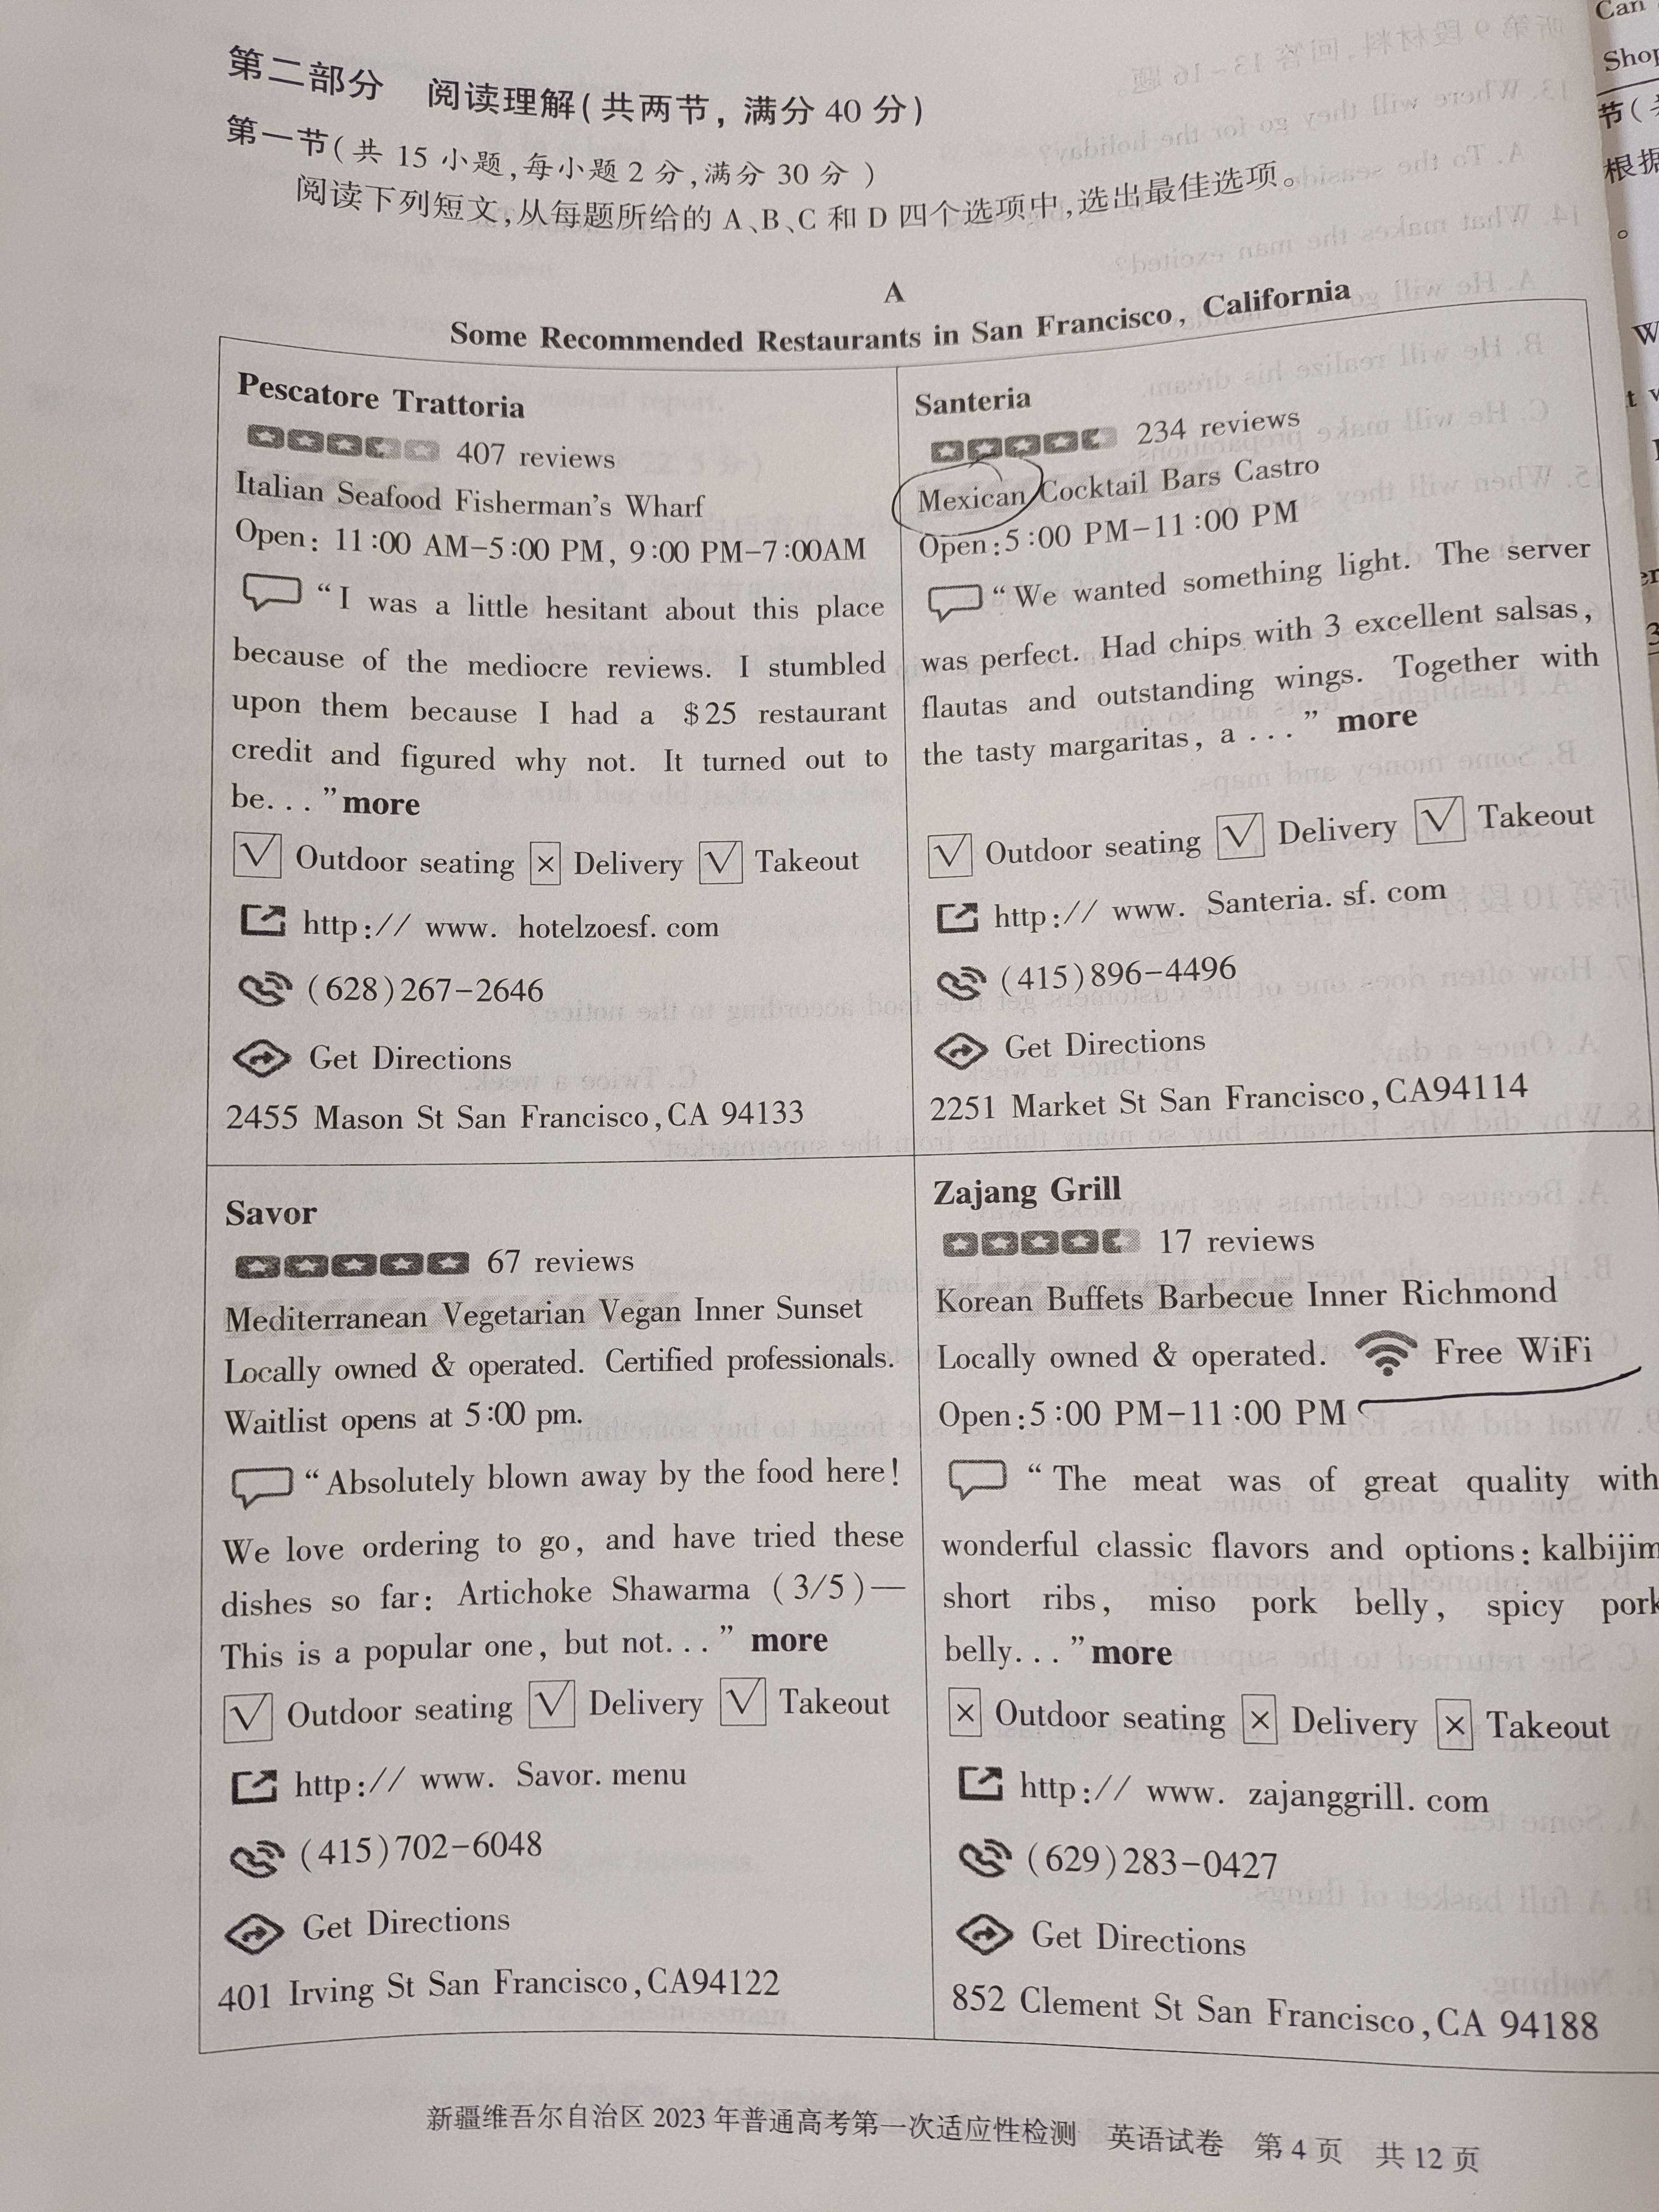 第二部分 阅读理解(共两节,满分 40 分)
第一节(共 15 小题,每小题 2 分,满分 30 分)
阅读下列短文,从每题所给的 A、B、C 和 D 四个选项中,选出最佳选项。
A
Some Recommended Restaurants in San Francisco, California
Pescatore Trattoria
407 reviews
Italian Seafood Fisherman's Wharf
Open: 11:00 AM-5:00 PM, 9:00 PM-7:00AM
"I was a little hesitant about this place
because of the mediocre reviews. I stumbled
upon them because I had a $25 restaurant
credit and figured why not. It turned out to
be..." more
√ Outdoor seating × Delivery √ Takeout
http:// www. hotelzoesf. com
(628)267-2646
Get Directions
2455 Mason St San Francisco,CA 94133
Santeria
234 reviews
Mexican Cocktail Bars Castro
Open:5:00 PM-11:00 PM
"We wanted something light. The server
was perfect. Had chips with 3 excellent salsas,
flautas and outstanding wings. Together with
the tasty margaritas, a ..." more
√ Outdoor seating √ Delivery √ Takeout
http:// www. Santeria. sf. com
(415)896-4496
Get Directions
2251 Market St San Francisco,CA94114
Savor
67 reviews
Mediterranean Vegetarian Vegan Inner Sunset
Locally owned & operated. Certified professionals.
Waitlist opens at 5:00 pm.
"Absolutely blown away by the food here!
We love ordering to go, and have tried these
dishes so far: Artichoke Shawarma (3/5)—
This is a popular one, but not..." more
√ Outdoor seating √ Delivery √ Takeout
http:// www. Savor. menu
(415)702-6048
Get Directions
401 Irving St San Francisco,CA94122
Zajang Grill
17 reviews
Korean Buffets Barbecue Inner Richmond
Locally owned & operated. Free WiFi
Open:5:00 PM-11:00 PM
"The meat was of great quality with
wonderful classic flavors and options: kalbijim
short ribs, miso pork belly, spicy pork
belly..." more
× Outdoor seating × Delivery × Takeout
http:// www. zajanggrill. com
(629)283-0427
Get Directions
852 Clement St San Francisco,CA 94188
新疆维吾尔自治区 2023 年普通高考第一次适应性检测 英语试卷 第 4 页 共 12 页
Can
Shop
节(
根据